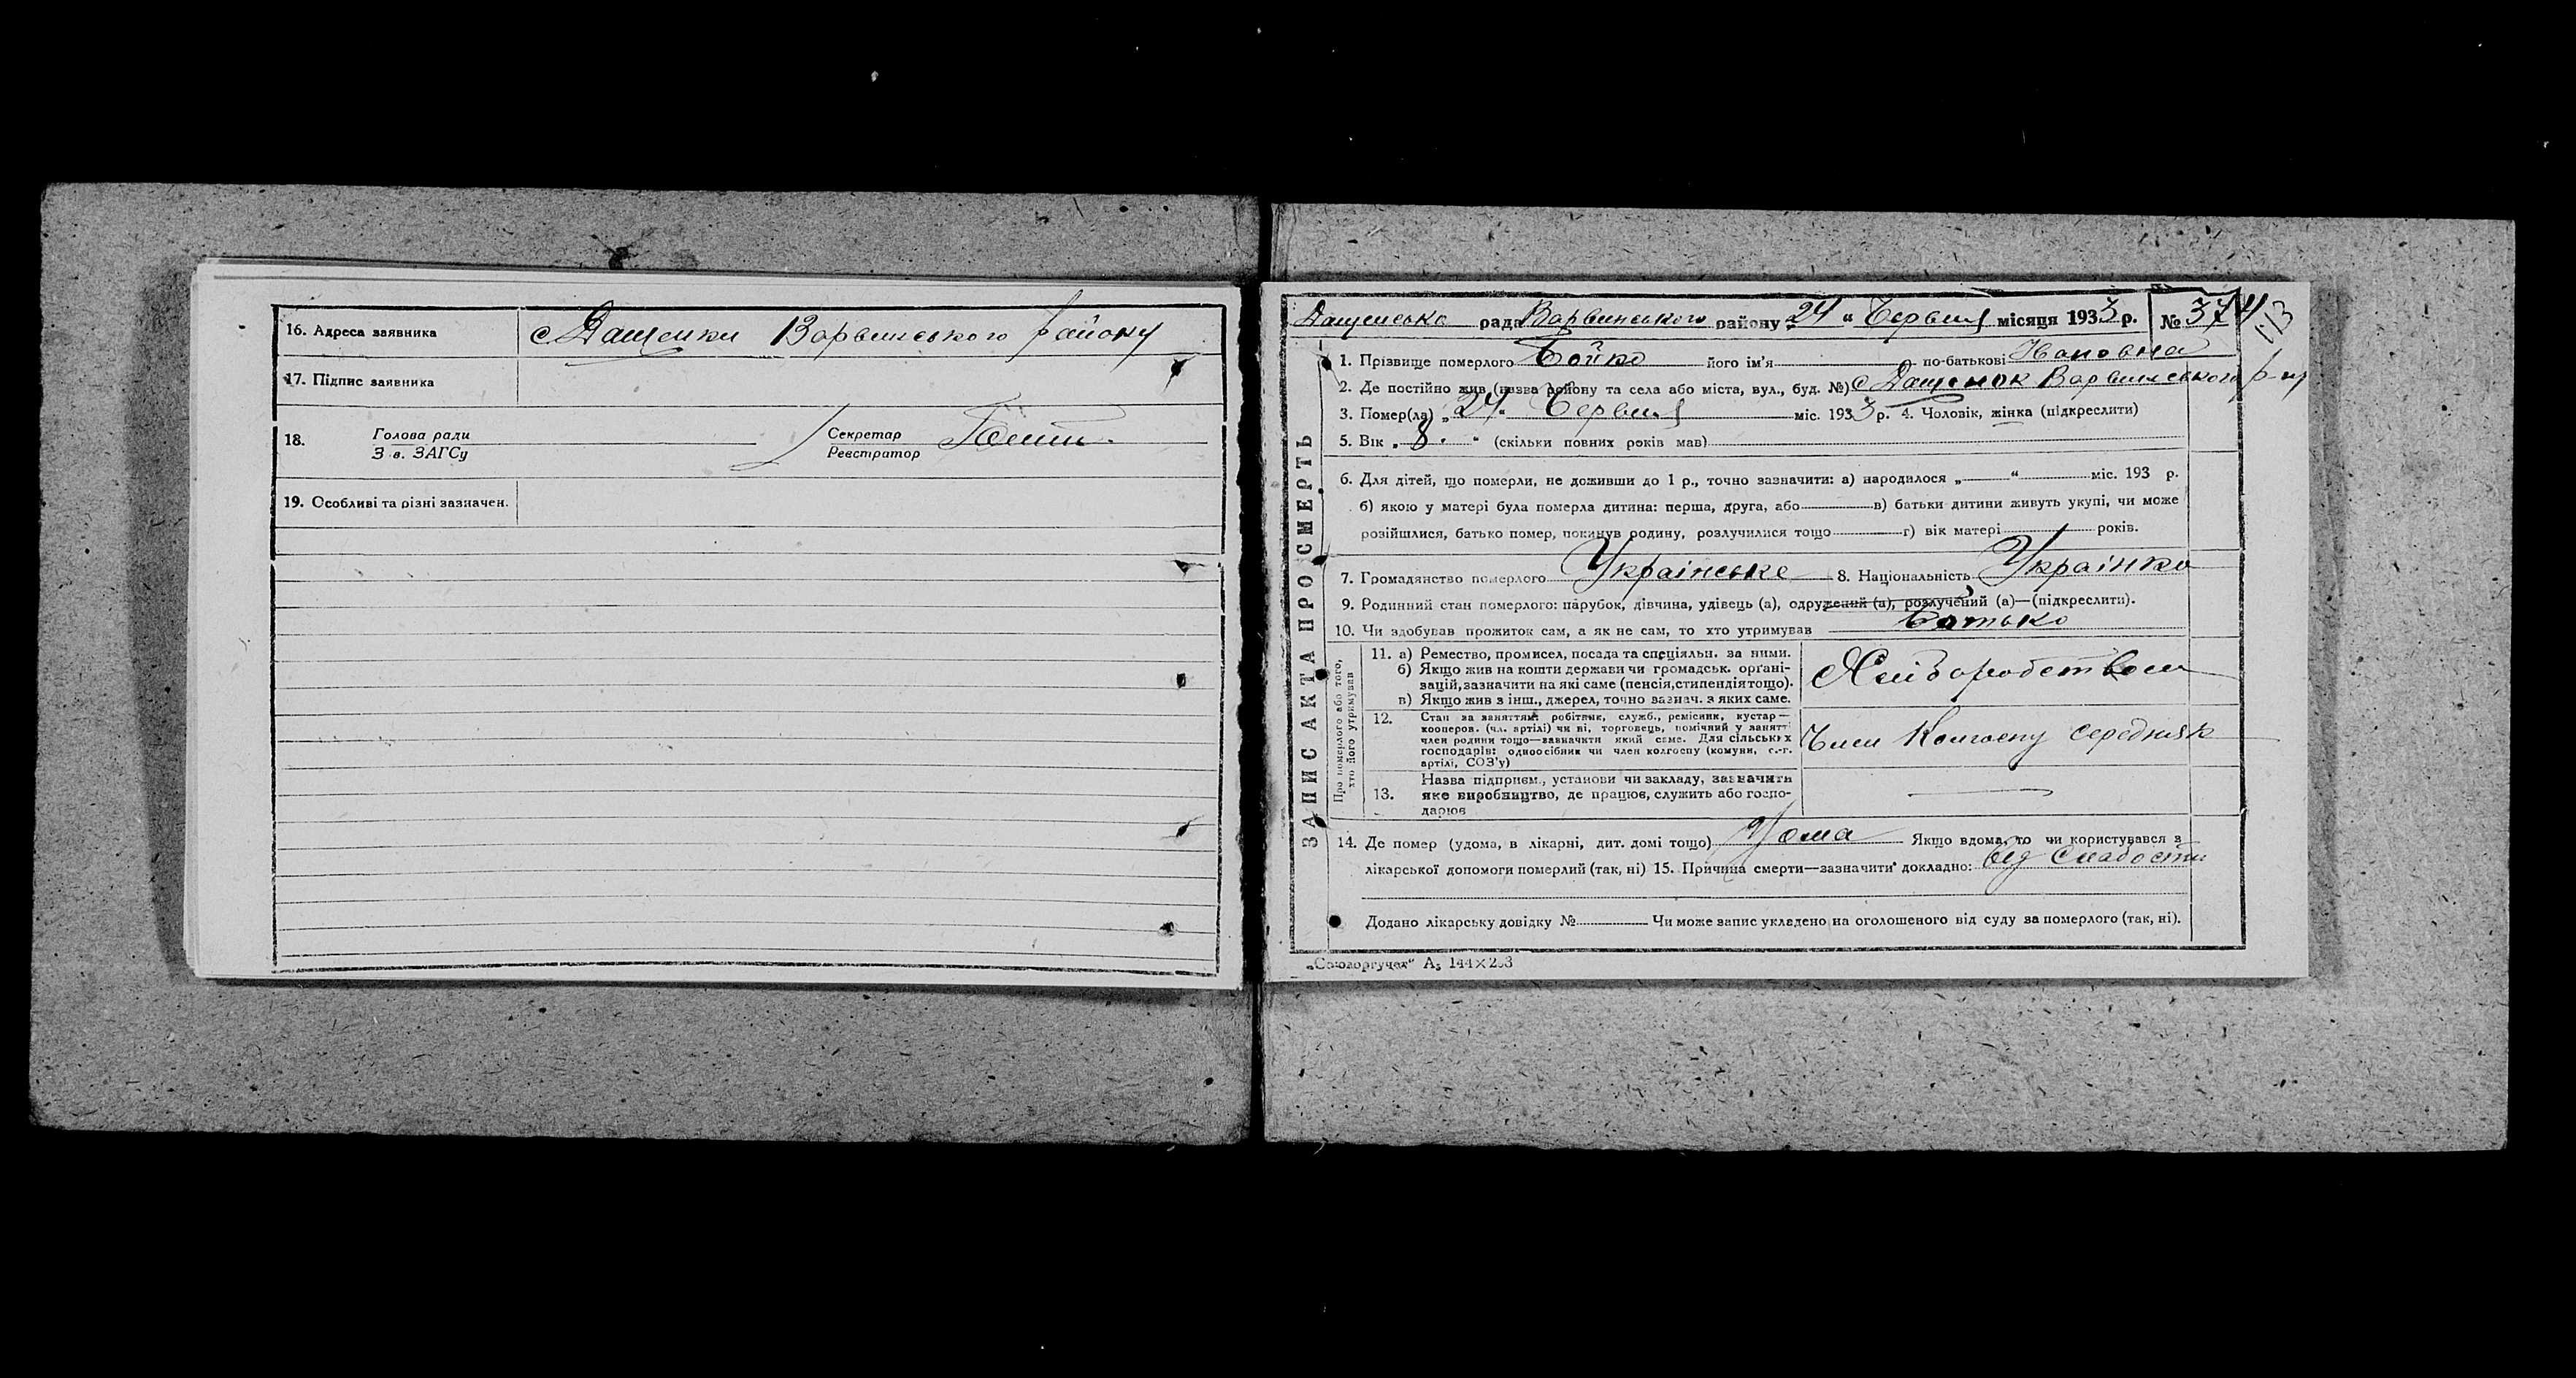 16. Адреса заявника с Дащенки Варвинського району
17. Підпис заявника
18. Голова ради Секретар
З в. ЗАГСу Реєстратор
19. Особливі та різні зазначен.
ЗАПИС АКТА ПРО СМЕРТЬ
Дащенсько рада Варвинського району „24“ Червня місяця 1933 р. № 374
113
1. Прізвище померлого Бойко його ім’я по-батькові Івановна
2. Де постійно жив (назва району та села або міста, вул., буд. №) с Дащенок Варвинського р-ну
3. Помер(ла) „24“ Червня міс. 1933 р. 4. Чоловік, жінка (підкреслити)
5. Вік „8.“ (скільки повних років мав)
6. Для дітей, що померли, не доживши до 1 р., точно зазначити: а) народилося „ “ міс. 193 р.
б) якою у матері була померла дитина: перша, друга, або в) батьки дитини живуть укупі, чи може
розійшлися, батько помер, покинув родину, розлучилися тощо г) вік матері років.
7. Громадянство померлого Українське 8. Національність Українка
9. Родинний стан померлого: парубок, дівчина, удівець (а), одружений (а), розлучений (а)—(підкреслити).
10. Чи здобував прожиток сам, а як не сам, то хто утримував батько
Про померлого або того,
хто його утримував
11. а) Ремество, промисел, посада та спеціяльн. за ними.
б) Якщо жив на кошти держави чи громадськ. орґані-
зацій, зазначити на які саме (пенсія, стипендія тощо).
в) Якщо жив з інш., джерел, точно зазнач. з яких саме.
Хліборобством
12. Стан за заняттям: робітник, служб., ремісник, кустар—
кооперов. (чл. артілі) чи ні, торговець, помічний у занятті
член родини тощо—зазначити який саме. Для сільських
господарів: одноосібник чи член колгоспу (комуни, с.-г.
артілі, СОЗ’у)
Член Колгоспу середняк
Назва підприєм., установи чи закладу, зазначити
13. яке виробництво, де працює, служить або госпо-
дарює
14. Де помер (удома, в лікарні, дит. домі тощо) Дома Якщо вдома, то чи користувався з
лікарської допомоги померлий (так, ні) 15. Причина смерти—зазначити докладно: від Слабости
Додано лікарську довідку № Чи може запис укладено на оголошеного від суду за померлого (так, ні).
„Союзоргучет“ А₅ 144×203